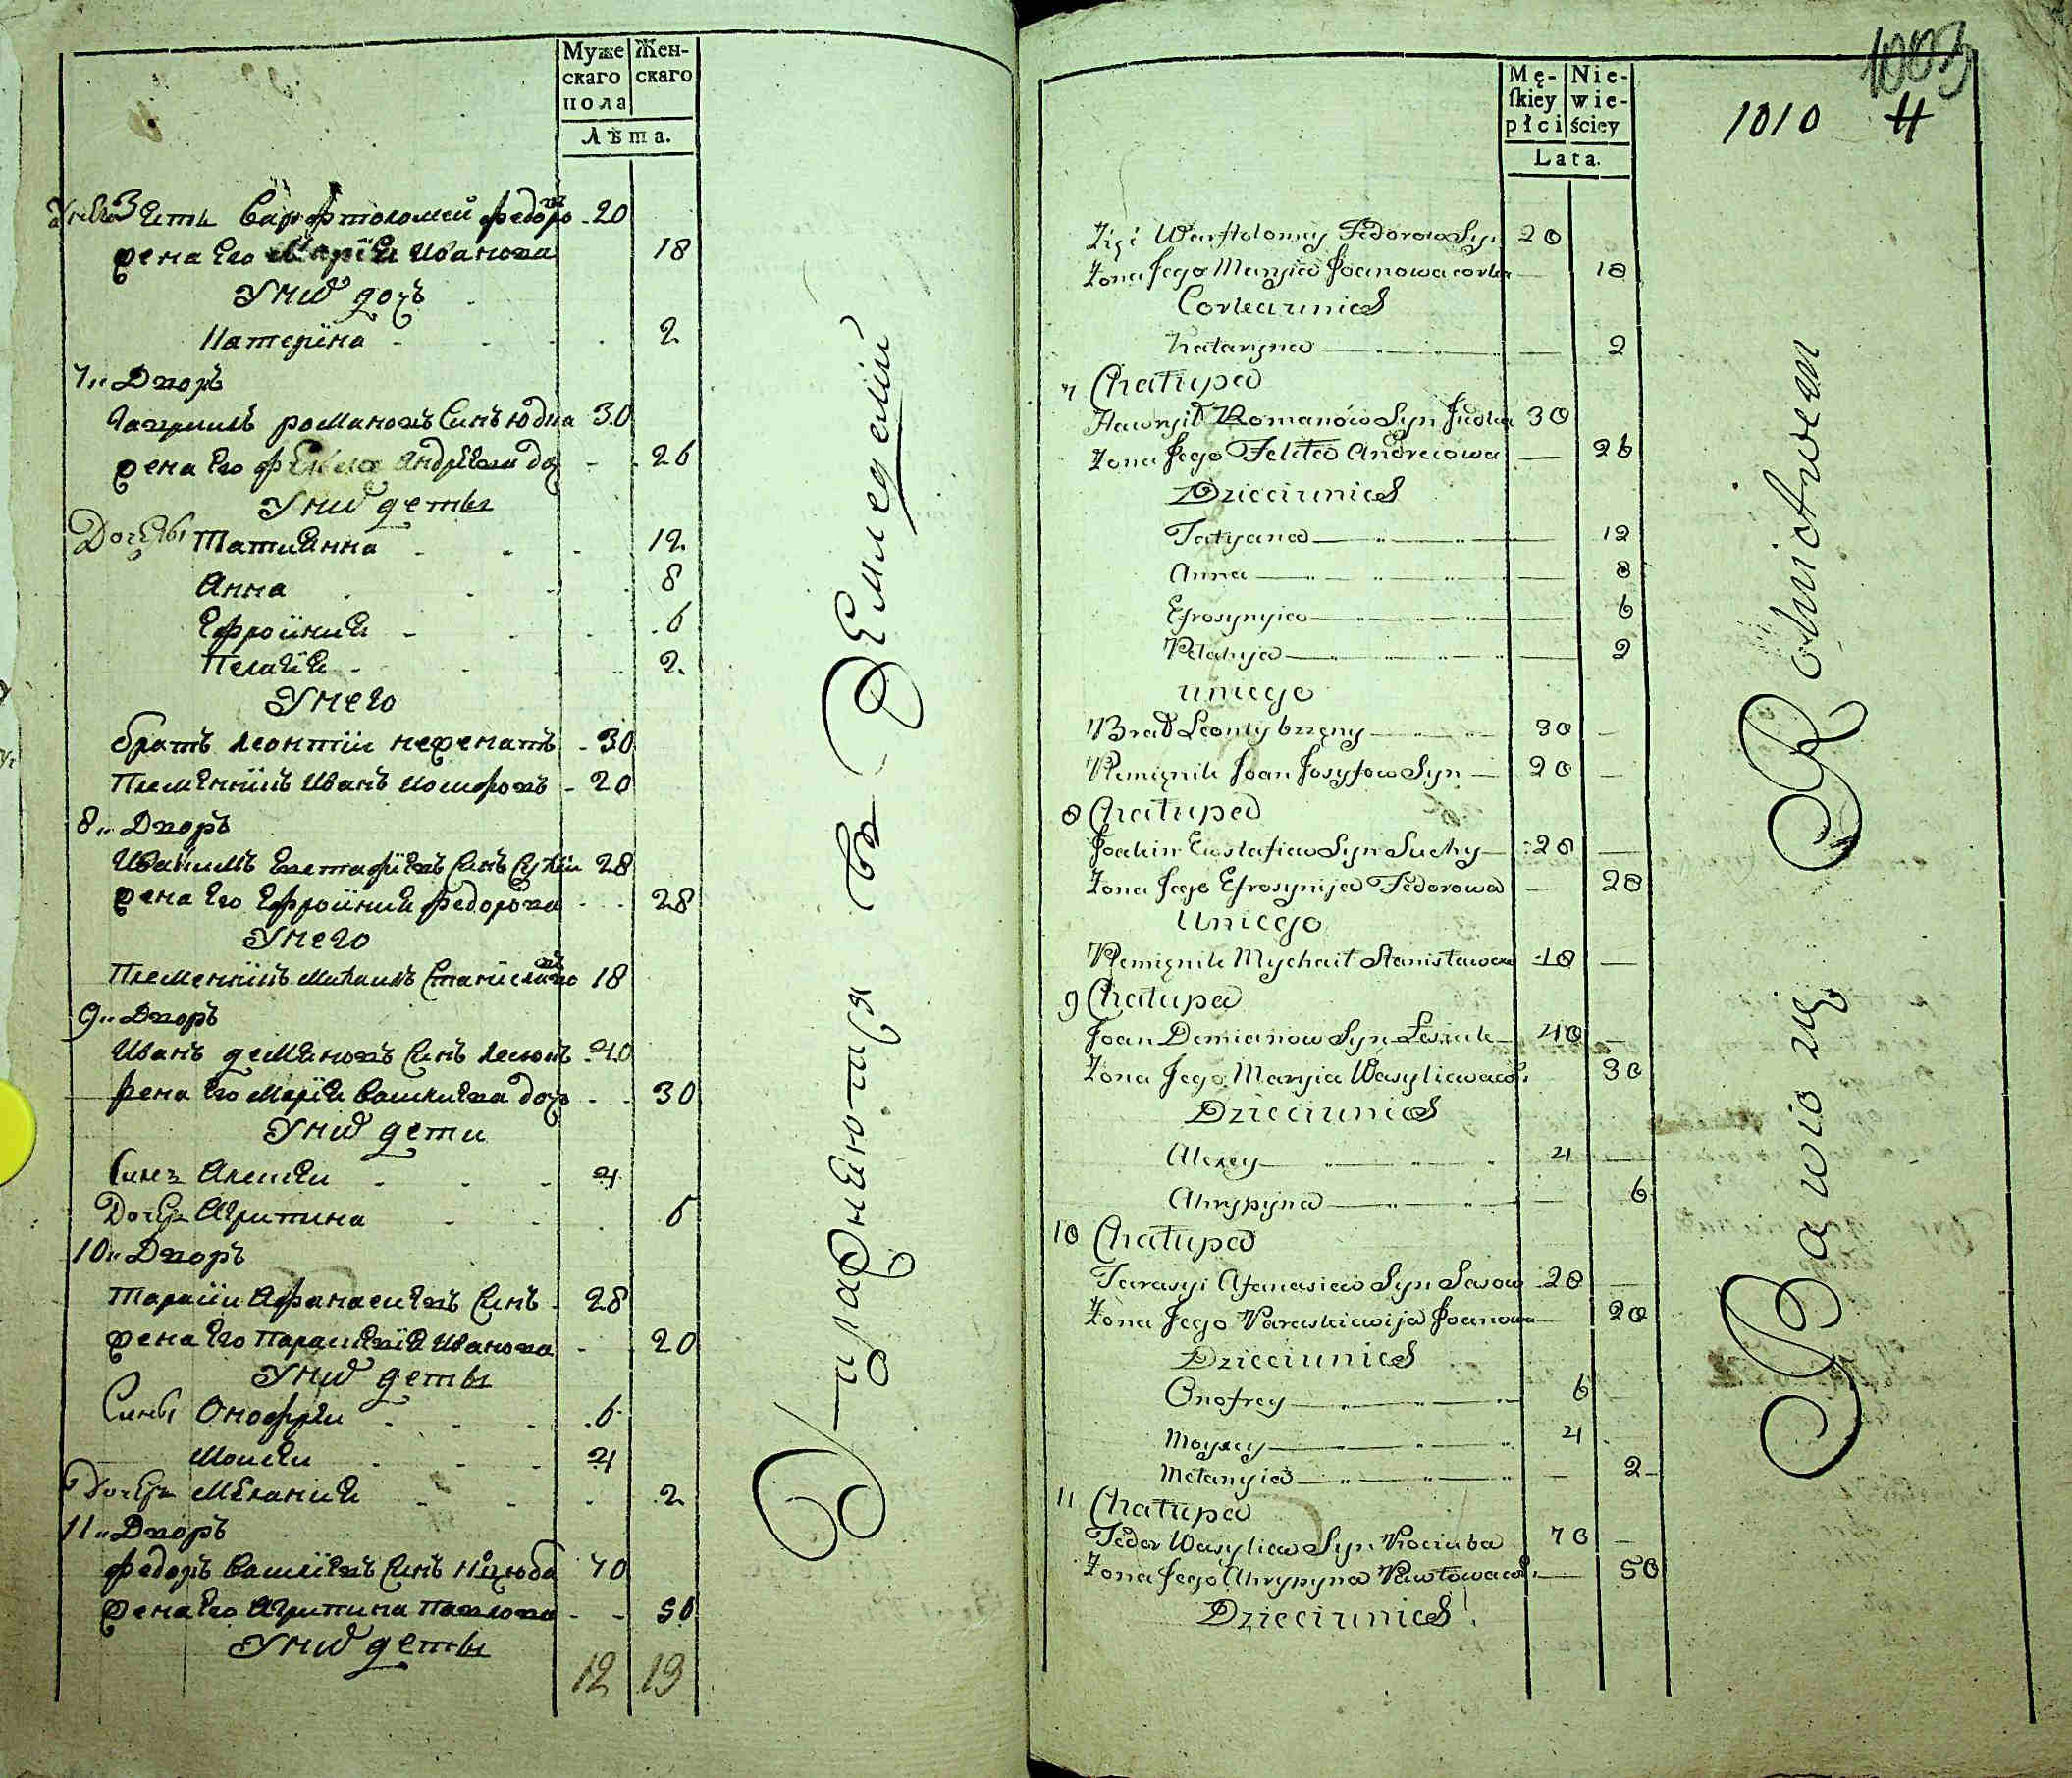 Муже Жен-
скаго скаго
пола
Лѣта.
У него Зять Варфтоломей федоровъ 20
жена Его Марїя Иванова 18
У них дочь
Катерина 2
7 Дворъ
Гаврилъ романовъ Синъ юдка 30
жена Его Андрѣева доч 26
У них дети
Дочеры Татиянна 12
Анна 8
Ефросиния 6
Пелагїя 2
У него
братъ леонтїи неженатъ 30
Племенникъ Иванъ Иосифовъ 20
8 Дворъ
Иоакимъ Евстафїевъ Синъ Сухїи 28
жена Его Ефросиния федорова 28
У него
Племенникъ Михаилъ Станїславовъ 18
9 Дворъ
Иванъ демяновъ Синъ лесюкъ 40
жена Его Марїя васильева доч 30
У них дети
Синъ Алексеи 4
Дочер Агрипина 6
10 Дворъ
Тарасїи Афанасиевъ Синъ 28
жена Его Параскевїя Иванова 20
У них дети
Сины Онофреи 6
Моисеи 4
Дочер Мелания 2
11 Дворъ
федоръ василїевъ Синъ Коцюба 70
жена Его Агрипина павлова 50
У них дети
12 19
Упражняются в Земледелїи
Mę- Nie-
skiey wie-
płci ściey
Lata.
1003
1010 4
Zięć Warftolomey Fedorow Syn 20
Żona Jego Maryia Joanowa corka 18
Corka u nich
Kataryna 2
7 Chałupa
Hawrył Romanów Syn Judka 30
Żona Jego Andreiowa 26
Dzieci u nich
Tatyana 12
Anna 8
Efrosynyia 6
Pelahija 2
u niego
Brat Leonty bzzęny 30
Plemięnik Joan Josyfow Syn 20
8 Chałupa
Joakim Eustafiew Syn Suchy 28
Żona Jego Efrosynija Fedorowa 28
U niego
Plemięnik Mychaił Stanisławow 18
9 Chałupa
Joan Demianow Syn Lesiuk 40
Żona Jego Maryia Wasyliewa c. 30
Dzieci u nich
Alexey 4
Ahrypyna 6
10 Chałupa
Tarasyi Afanasiew Syn Sasow 28
Żona Jego Paraskiewija Joanowa 20
Dzieci u nich
Onofrey 6
Moysey 4
Melanyia 2
11 Chałupa
Fedor Wasyliew Syn Kociuba 70
Żona Jego Ahrypyna Pawłowa c. 50
Dzieci u nich
Bawio się Rolnictwem